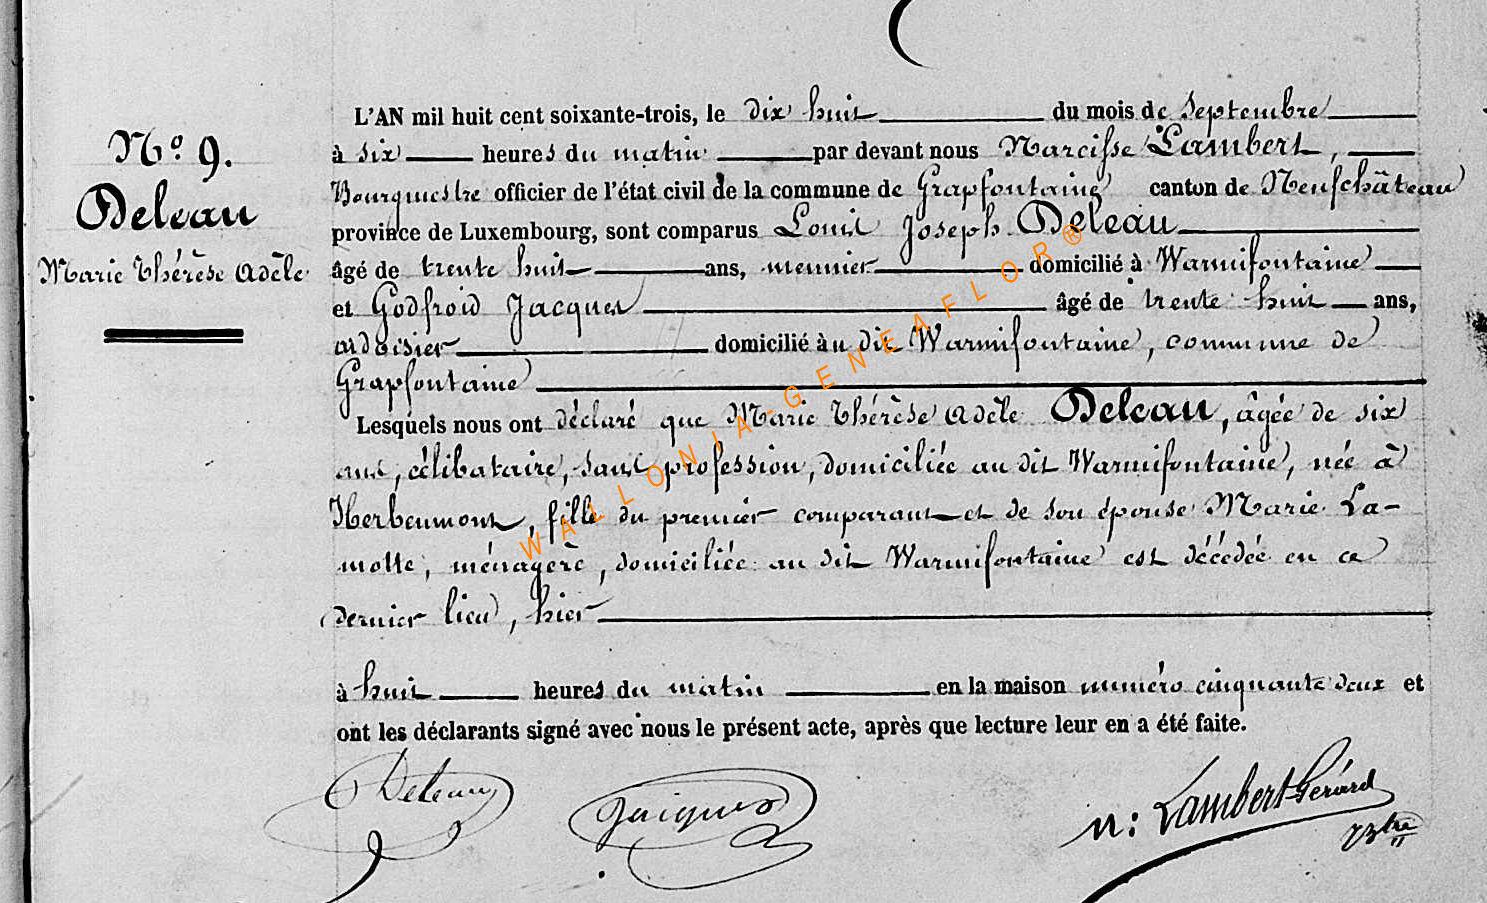 L'AN mil huit cent soixante-trois, le dix huit du mois de Septembre
N° 9.
à six heures du matin par devant nous Narcisse Lambert,
Bourgmestre officier de l'état civil de la commune de Grapfontaine canton de Neufchâteau
Deleau
province de Luxembourg, sont comparus Louis Joseph Deleau
Marie Thérèse Adèle
âgé de trente huit ans, meunier domicilié à Warmifontaine
et Godfroid Jacques âgé de trente huit ans,
ardoisier domicilié à u dit Warmifontaine, commune de
Grapfontaine
Lesquels nous ont déclaré que Marie Thérèse Adèle Deleau, âgée de six
ans, célibataire, sans profession, domiciliée au dit Warmifontaine, née à
Herbeumont, fille du premier comparant et de son épouse Marie La-
motte, ménagère, domiciliée au dit Warmifontaine est décédée en ce
dernier lieu, hier
à huit heures du matin en la maison numéro cinquante deux et
ont les déclarants signé avec nous le présent acte, après que lecture leur en a été faite.
Deleau Jacques N: Lambert Gérard
Btre
WALLONIA-GENEAFLOR®